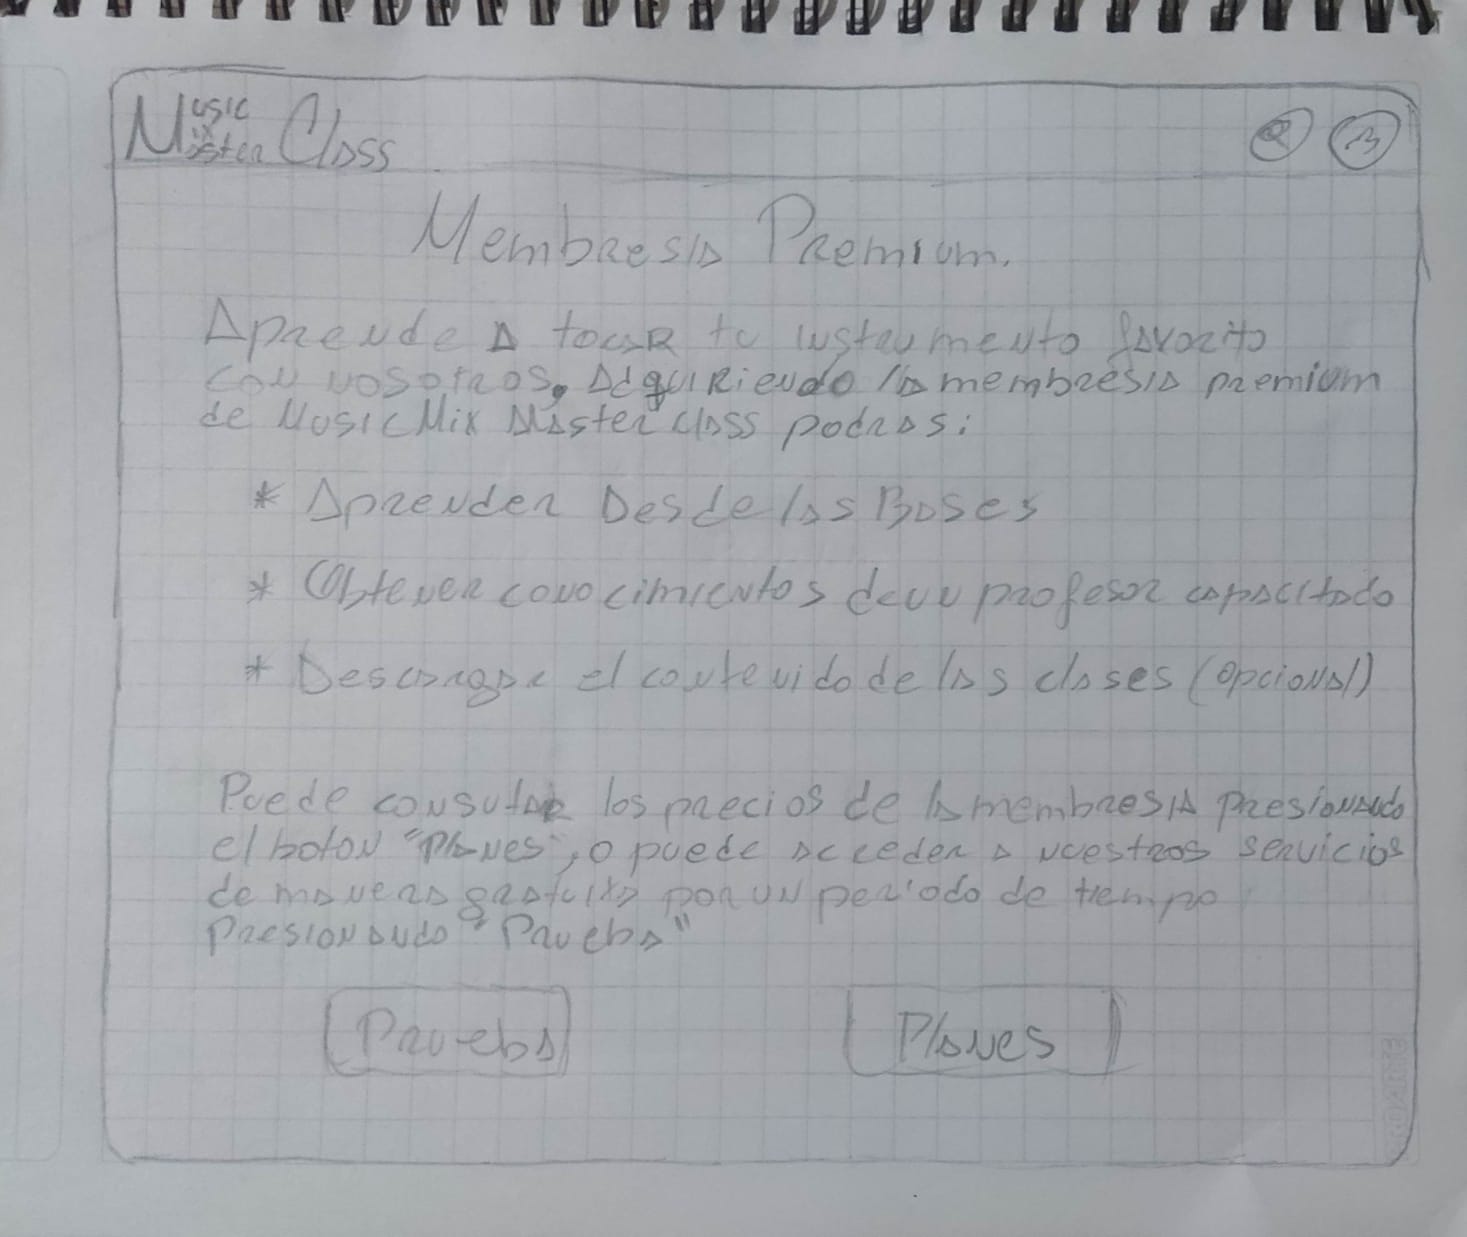 Music
Mix
Master Class
Membresia Premium.
Aprende a tocar tu instrumento favorito
con nosotros. Adquiriendo la membresia premium
de MusicMix Master class podras:
* Aprender Desde las Bases
* Obtener conocimientos de un profesor capacitado
* Descargar el contenido de las clases (opcional)
Puede consultar los precios de la membresia presionando
el boton "Planes", o puede acceder a nuestros servicios
de manera gratuita por un periodo de tiempo
presionando "Prueba"
Prueba Planes